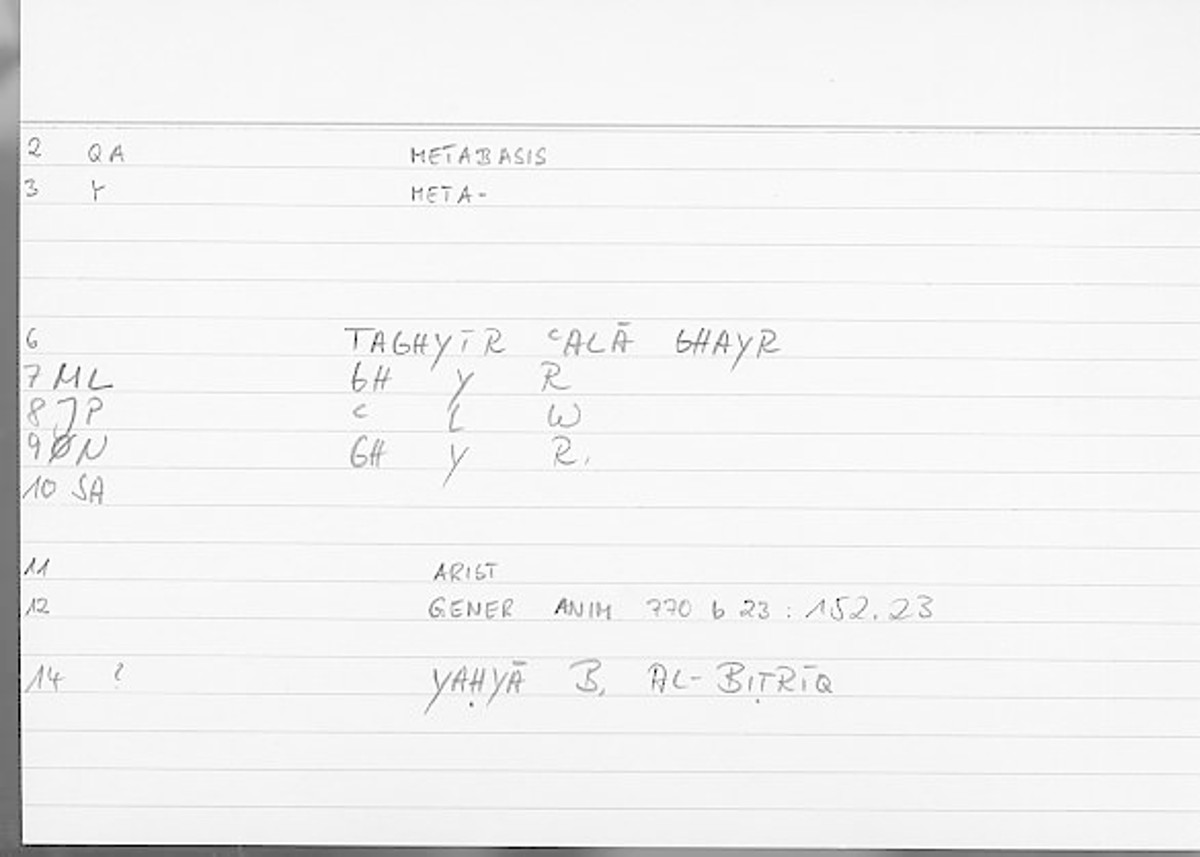 2 QA METABASIS
3 Y META-
6 TAGHYĪR ᶜALĀ GHAYR
7 ML GH Y R
8 JP ᶜ L W
9 ØN GH Y R.
10 SA
11 ARIST
12 GENER ANIM 770 b 23 : 152.23
14 ? YAḤYĀ B. AL-BIṬRĪQ